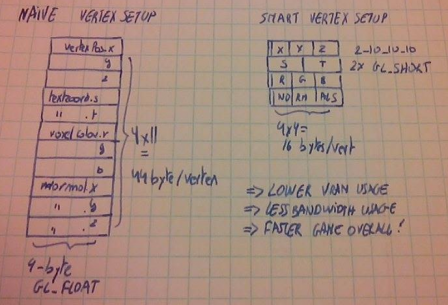 NAÏVE VERTEX SETUP
vertexPos.x
y
z
texcoord.s
" .t
voxelColour.r
g
b
normal.x
" .y
" .z
4x11
=
44 byte/vertex
4-byte
GL_FLOAT
SMART VERTEX SETUP
X Y Z 2_10_10_10
S T 2X GL_SHORT
R G B
NO RM ALS
4x4=
16 bytes/vert
=> LOWER VRAM USAGE
=> LESS BANDWIDTH USAGE
=> FASTER GAME OVERALL!